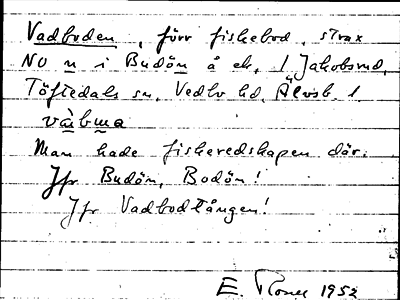 Vadboden, förr fiskebod, strax
NO n i Budön å ek. 1 Jakobsrud,
Töftedals sn, Vedbo hd, Älvsb. l
vàbωa
Man hade fiskeredskapen där.
Jfr Budön, Bodön!
Jfr Vadbodtången!
E. 1952